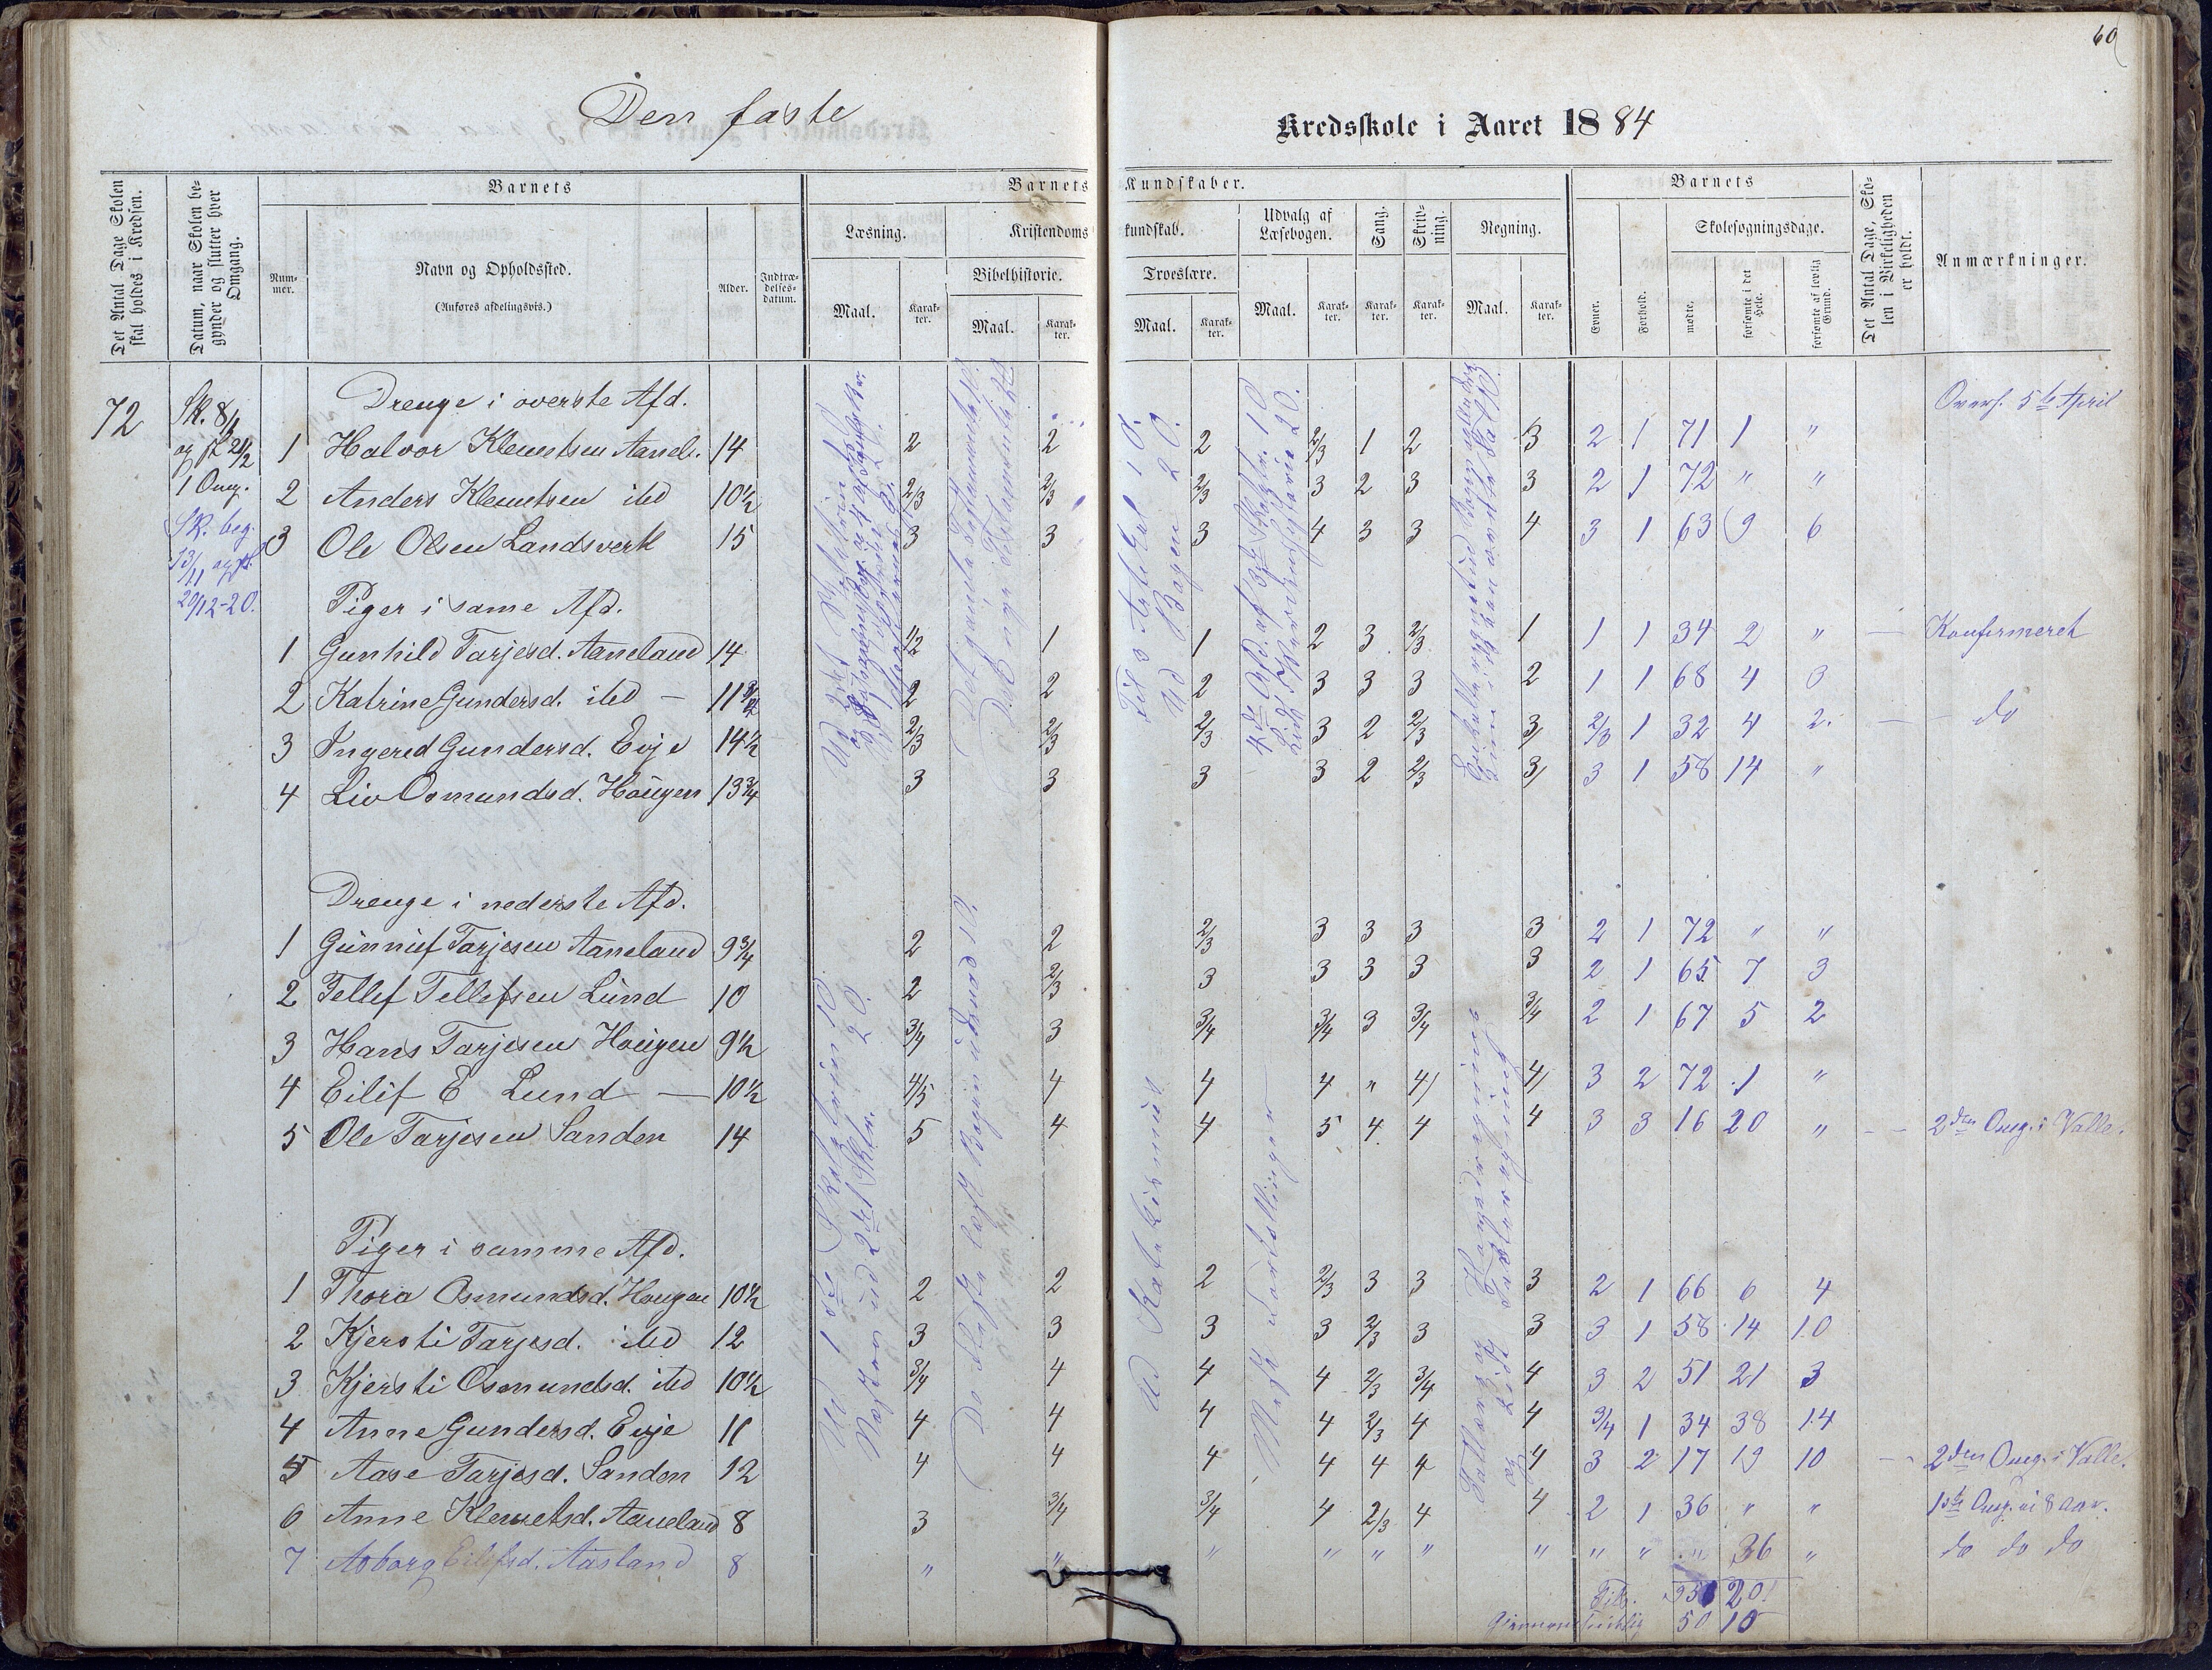 60
Den faste
Kredsskole i Aaret 1884
Det Antal Dage Skolen skal holdes i Kredsen.
Datum, naar Skolen begynder og slutter hver Omgang.
Barnets
Nummer.
Navn og Opholdssted.
(Anføres afdelingsvis.)
Alder.
Indtrædelsesdatum.
Barnets Kundskaber.
Læsning.
Maal.
Karakter.
Kristendomskundskab.
Bibelhistorie.
Maal.
Karakter.
Troeslære.
Maal.
Karakter.
Udvalg af Læsebogen.
Maal.
Karakter.
Sang.
Karakter.
Skrivning.
Karakter.
Regning.
Maal.
Karakter.
Barnets
Evner.
Forhold.
Skolesøgningsdage.
mødte.
forsømte i det Hele.
forsømte af lovlig Grund.
Det Antal Dage, Skolen i Virkeligheden er holdt.
Anmærkninger.
72
Sk. 8/1
og sl. 21/2
1 Omg.
Sk. beg.
13/11 og sl.
20/12-20.
Drenge i øverste Afd.
Overf. 5te April
1 Halvor Klemetsen Aanel. 14 2 2 2 2/3 1 2 3 2 1 71 1 "
2 Anders Klemetsen ibd 10½ 2/3 2/3 2/3 3 2 3 3 2 1 72 " "
3 Ole Olsen Landsverk 15 3 3 3 4 3 3 4 3 1 63 9 6
Piger i same Afd.
1 Gunhild Tarjesd. Aaneland 14 1/2 1 1 2 3 2/3 1 1 1 34 2 " — Konfirmeret
2 Katrine Gundersd. ibd — 11¾ 2 2 2 3 3 3 2 1 1 68 4 3
3 Ingered Gundersd. Evje 14½ 2/3 2/3 2/3 3 2 2/3 3 2/3 1 32 4 2. — do
4 Liv Osmundsd. Hougen 13¾ 3 3 3 3 2 2/3 3 3 1 58 14 "
Drenge i nederste Afd.
1 Gunnuf Tarjesen Aaneland 9¾ 2 2 2/3 3 3 3 3 2 1 72 " "
2 Tellef Tellefsen Lund 10 2 2/3 3 3 3 3 3 2 1 65 7 3
3 Hans Tarjesen Hougen 9½ 3/4 3 3/4 3/4 3 3/4 3/4 2 1 67 5 2
4 Eilif E Lund — 10½ 4/5 4 4 4 " 4 4 3 2 72 1 "
5 Ole Tarjesen Sanden 14 5 4 4 5 4 4 4 3 3 16 20 " — 2den Omg. i Valle.
Piger i samme Afd.
1 Thora Osmundsd. Hougen 10½ 2 2 2 2/3 3 3 3 2 1 66 6 4
2 Kjersti Tarjesd. ibd 12 3 3 3 3 2/3 3 3 3 1 58 14 10
3 Kjersti Osmundsd. ibd 10½ 3/4 4 4 4 2/3 3/4 4 3 2 51 21 3
4 Anne Gundersd. Evje 11 4 4 4 4 2/3 4 4 3/4 1 34 38 14
5 Aase Tarjesd. Sanden 12 4 4 4 4 4 4 4 3 2 17 19 10 — 2den Omg. i Valle.
6 Anne Klemetsd. Aaneland 8 3 3/4 3/4 4 2/3 4 4 2 1 36 " " 1ste Omg. ei 8 aar.
7 Asborg Eilefsd. Aasland 8 " " " " " " " " " " 36 " do do do
Tils. 201
50 10